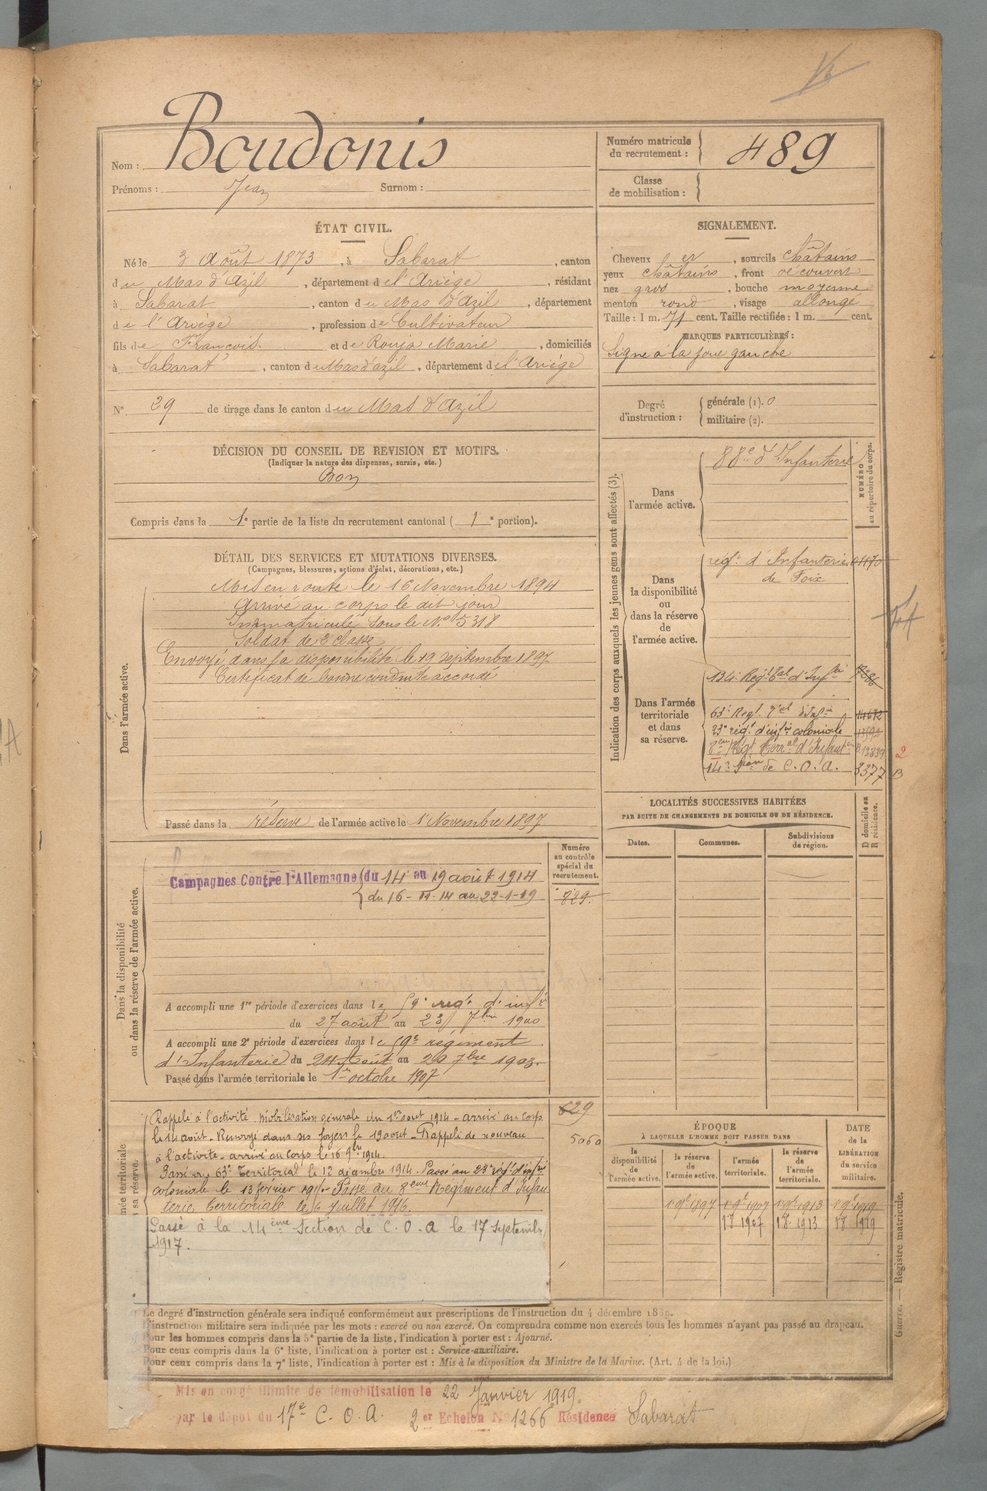 Nom : Boudonis
Prénoms : Jean Surnom :
Numéro matricule du recrutement : 489
Classe de mobilisation :
ÉTAT CIVIL.
Né le 3 Août 1873, à Sabarat, canton
du Mas d'Azil, département de l'Ariège, résidant
à Sabarat, canton du Mas d'Azil, département
de l'Ariège, profession de Cultivateur
fils de François et de Rouja Marie, domiciliés
à Sabarat, canton du Mas d'azil, département de l'Ariège
N° 29 de tirage dans le canton du Mas d'Azil
SIGNALEMENT.
Cheveux, sourcils châtains
yeux châtains, front découvert
nez gros, bouche moyenne
menton rond, visage allongé
Taille : 1 m. 71 cent. Taille rectifiée : 1 m. cent.
MARQUES PARTICULIÈRES :
Signe à la joue gauche
Degré d'instruction : générale (1). 0
militaire (2).
DÉCISION DU CONSEIL DE REVISION ET MOTIFS.
(Indiquer la nature des dispenses, sursis, etc.)
Bon
Compris dans la 1e partie de la liste du recrutement cantonal (1e portion).
DÉTAIL DES SERVICES ET MUTATIONS DIVERSES.
(Campagnes, blessures, actions d'éclat, décorations, etc.)
Dans l'armée active.
Mis en route le 16 Novembre 1894
Arrivé au corps le dit jour
Immatriculé sous le N° 5318
Soldat de 2e classe
Envoyé dans la disponibilité le 19 septembre 1897
Certificat de bonne conduite accordé
Passé dans la réserve de l'armée active le 1 Novembre 1897
Indication des corps auxquels les jeunes gens sont affectés (3).
NUMÉRO au répertoire du corps.
Dans l'armée active.
88e d'Infanterie
Dans la disponibilité ou dans la réserve de l'armée active.
régt d'Infanterie
de Foix
Dans l'armée territoriale et dans sa réserve.
134e Regt Tal d'Infrie
63e Regt Tal d'Infie
23e régt d'infie coloniale
8ème Régt Terral d'Infanterie
14e Son de C.O.A. 3377
LOCALITÉS SUCCESSIVES HABITÉES
PAR SUITE DE CHANGEMENTS DE DOMICILE OU DE RÉSIDENCE.
Dates. Communes. Subdivisions de région. D domicile ou R résidence.
Dans la disponibilité ou dans la réserve de l'armée active.
Numéro au contrôle spécial du recrutement.
829
Campagnes Contre l'Allemagne du 14 au 19 août 1914
du 16-11-14 au 22-1-19
A accompli une 1re période d'exercices dans le 59e regt d'infie
du 27 août au 23 7bre 1900
A accompli une 2e période d'exercices dans le 59e régiment
d'Infanterie du 24 Août au 20 7bre 1903.
Passé dans l'armée territoriale le 1er octobre 1907
Rappelé à l'activité. Mobilisation générale du 1er aout 1914 - arrivé au corps
le 14 août. Renvoyé dans ses foyers le 19 aout. Rappelé de nouveau
à l'activité. arrivé au corps le 16 9bre 1914.
Passé au 63e Territorial le 12 décembre 1914. Passé au 23e régt d'infie
coloniale le 13 février 1915. Passé au 8ème Régiment d'Infan
terie Territoriale le 6 Juillet 1916.
Passé à la 14ème Section de C.O.A le 17 Septembre
1917.
829
5060
ÉPOQUE
À LAQUELLE L'HOMME DOIT PASSER DANS
la disponibilité de l'armée active. la réserve de l'armée active. l'armée territoriale. la réserve de l'armée territoriale.
DATE de la LIBÉRATION du service militaire.
1 9bre 1897 1 9bre 1907 1 9bre 1913 1 9bre 1919
1 8 1907 1 8 1913 1 8 1919
Le degré d'instruction générale sera indiqué conformément aux prescriptions de l'instruction du 4 décembre 1889.
L'instruction militaire sera indiquée par les mots : exercé ou non exercé. On comprendra comme non exercés tous les hommes n'ayant pas passé au drapeau.
Pour les hommes compris dans la 5e partie de la liste, l'indication à porter est : Ajourné.
Pour ceux compris dans la 6e liste, l'indication à porter est : Service-auxiliaire.
Pour ceux compris dans la 7e liste, l'indication à porter est : Mis à la disposition du Ministre de la Marine. (Art. 4 de la loi.)
Guerre. — Registre matricule.
Mis en congé illimité de démobilisation le 22 Janvier 1919.
par le dépôt du 17e C.O.A. 2er Echelon N° 1266 Résidence Sabarat